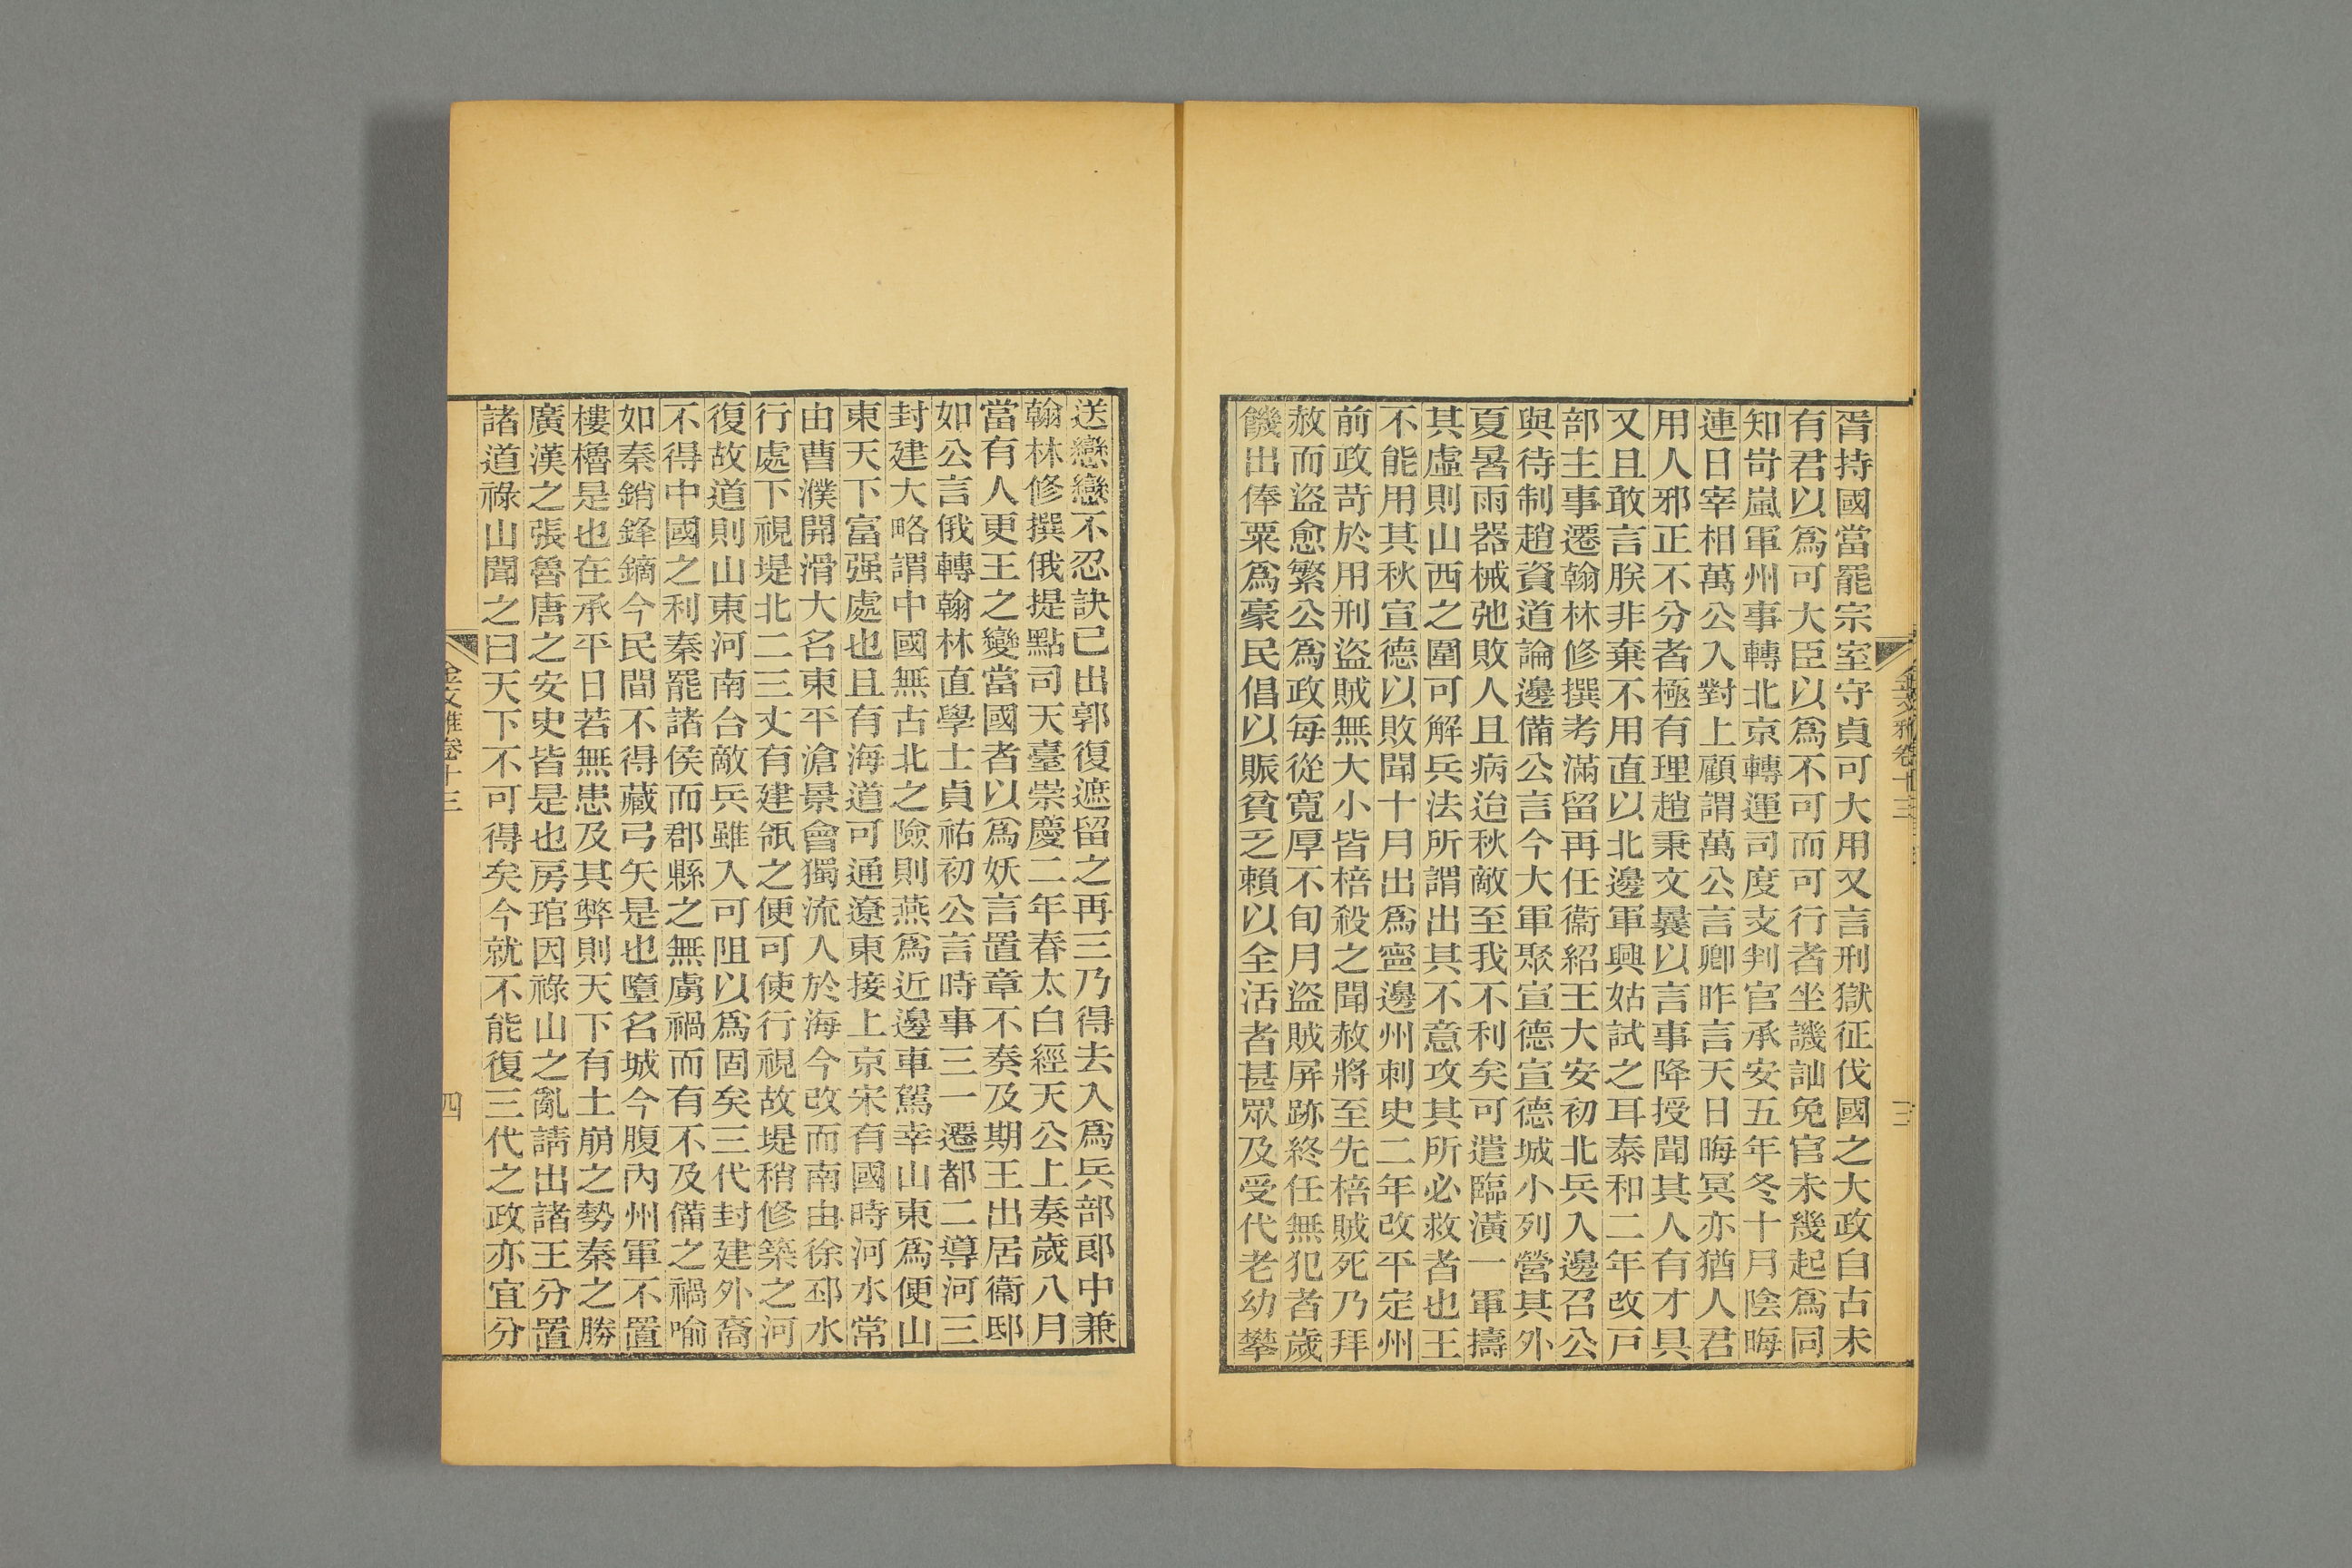 胥持國當罷宗室守貞可大用又言刑獄征伐國之大政自古未
有君以爲可大臣以爲不可而可行者坐譏訕免官未幾起爲同
知岢嵐軍州事轉北京轉運司度支判官承安五年冬十月陰晦
連日宰相萬公入對上顧謂萬公言卿昨言天日晦冥亦猶人君
用人邪正不分者極有理趙秉文曩以言事降授聞其人有才具
又且敢言朕非棄不用直以北邊軍興姑試之耳泰和二年改戸
部主事遷翰林修撰考滿留再任衞紹王大安初北兵入邊召公
與待制趙資道論邊備公言今大軍聚宣德宣德城小列營其外
夏暑雨器械弛敗人且病迨秋敵至我不利矣可遣臨潢一軍擣
其虛則山西之圍可解兵法所謂出其不意攻其所必救者也王
不能用其秋宣德以敗聞十月出爲寧邊州刺史二年改平定州
前政苛於用刑盜賊無大小皆棓殺之聞赦將至先棓賊死乃拜
赦而盜愈繁公爲政每從寬厚不旬月盜賊屏跡終任無犯者歲
饑出俸粟爲豪民倡以賑貧乏賴以全活者甚眾及受代老幼攀
金文雅卷十三
三
送戀戀不忍訣已出郭復遮留之再三乃得去入爲兵部郎中兼
翰林修撰俄提點司天臺崇慶二年春太白經天公上奏歲八月
當有人更王之變當國者以爲妖言置章不奏及期王出居衞邸
如公言俄轉翰林直學士貞祐初公言時事三一遷都二導河三
封建大略謂中國無古北之險則燕爲近邊車駕幸山東爲便山
東天下富强處也且有海道可通遼東接上京宋有國時河水常
由曹濮開滑大名東平滄景會獨流入於海今改而南由徐邳水
行處下視堤北二三丈有建瓴之便可使行視故堤稍修築之河
復故道則山東河南合敵兵雖入可阻以爲固矣三代封建外裔
不得中國之利秦罷諸侯而郡縣之無虜禍而有不及備之禍喻
如秦銷鋒鏑今民間不得藏弓矢是也墮名城今腹內州軍不置
樓櫓是也在承平日若無患及其弊則天下有土崩之勢秦之勝
廣漢之張魯唐之安史皆是也房琯因祿山之亂請出諸王分置
諸道祿山聞之曰天下不可得矣今就不能復三代之政亦宜分
金文雅卷十三
四